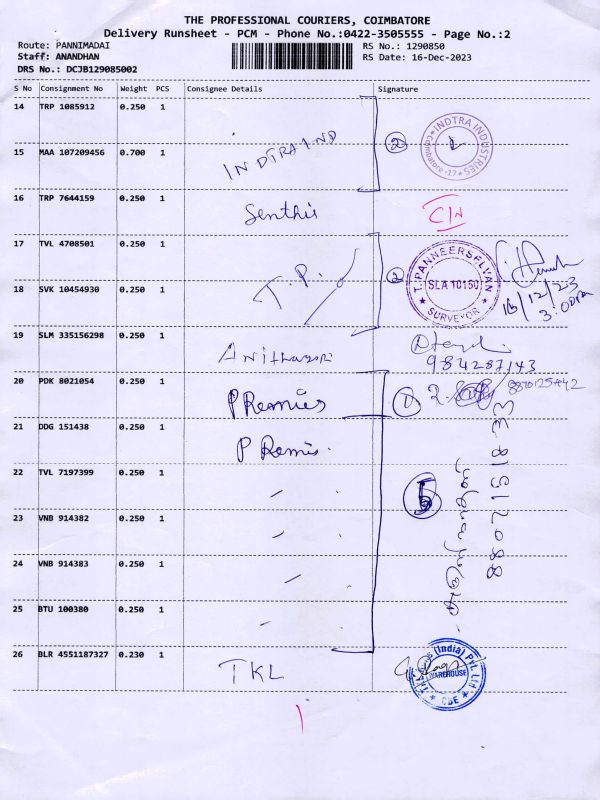 THE PROFESSIONAL COURIERS, COIMBATORE
Delivery Runsheet - PCM - Phone No.:0422-3505555 - Page No.:2
Route: PANNIMADAI
RS No.: 1290850
Staff: ANANDHAN
RS Date: 16-Dec-2023
DRS No.: DCJB129085002
S No Consignment No Weight PCS Consignee Details Signature
14 TRP 1085912 0.250 1
INDTRA IND
2
INDTRA INDUSTRIES
Coimbatore -17
15 MAA 107209456 0.700 1
16 TRP 7644159 0.250 1 Senthil
17 TVL 4708501 0.250 1
T.P.
2
T.PANNEERSELVAN
SLA 10150
SURVEYOR
16/12/23
3:00pm
18 SVK 10454930 0.250 1
19 SLM 335156298 0.250 1
984287143
20 PDK 8021054 0.250 1 PRemies 1 2.
21 DDG 151438 0.250 1 P Remis.
22 TVL 7197399 0.250 1
5
8802151833
23 VNB 914382 0.250 1
24 VNB 914383 0.250 1
25 BTU 100380 0.250 1
26 BLR 4551187327 0.230 1 TKL
(India) Pvt. Ltd
WAREHOUSE
CBE